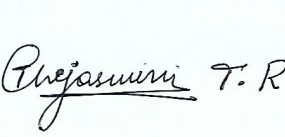 Thejaswini T. R